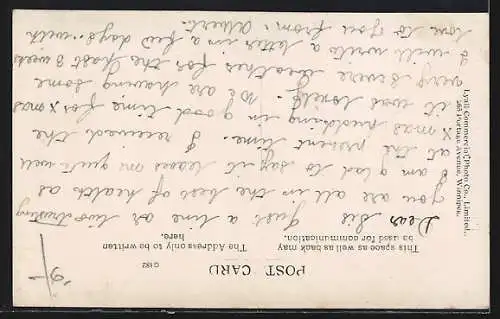 POST CARD
G 182
This space as well as back may
be used for communication.
The Address only to be written
here.
Dear Sis Just a line or two trusting
you are all in the best of health as
I am glad to say it leaves me quite well
at the present time. I received the
X mas pudding in good time for X mas
it was lovely. We are having some
very severe weather for the past 3 weeks
I will write a letter in a few days. with
love to you from. Albert.
Lyall Commercial Photo Co., Limited.,
Portage Avenue, Winnipeg.